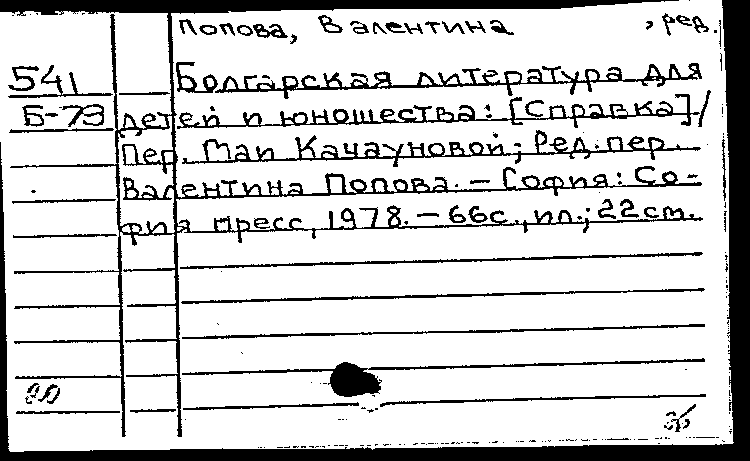 Попова, Валентина , ред.
541 Болгарская литература для
Б-79 детей и юношества: [Справка]/
Пер. Маи Качауновой; Ред. пер.
Валентина Попова. — София: Со-
фия пресс, 1978. — 66с., ил.; 22см.